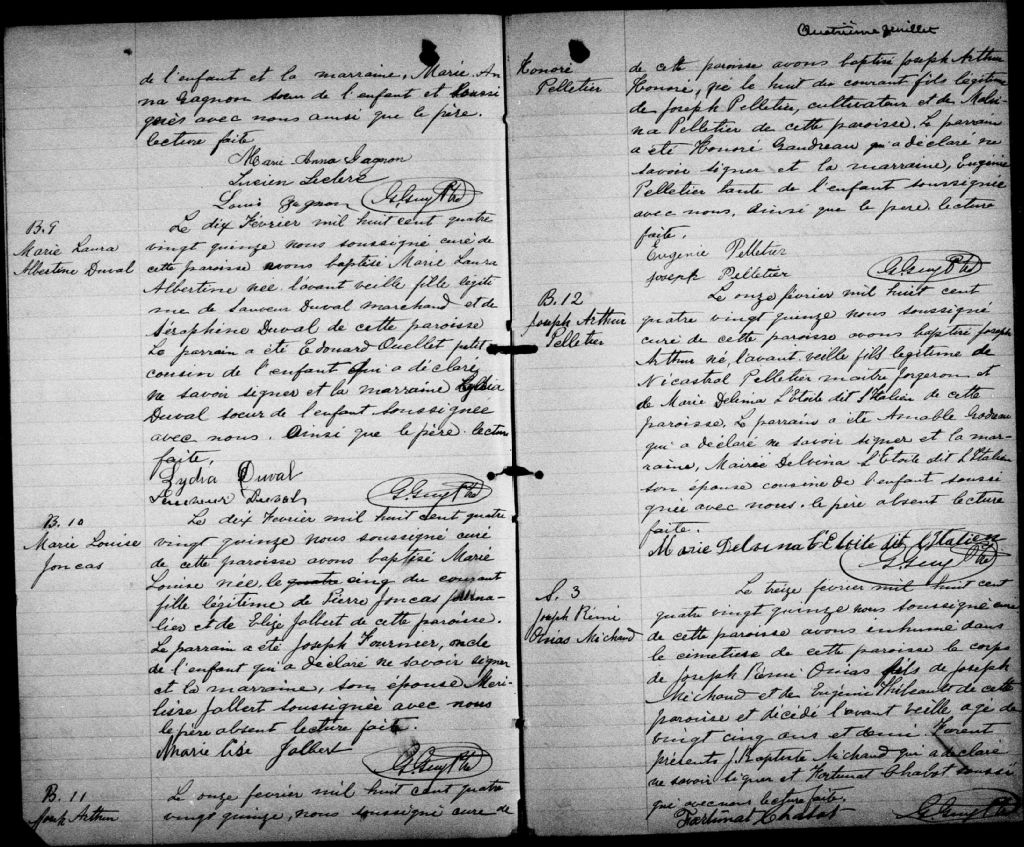 de l'enfant et la marraine, Marie An
na Gagnon sœur de l'enfant et soussi
gnés avec nous ainsi que le père.
lecture faite
Marie Anna Gagnon
Lucien Leclerc
Louis Gagnon G. Guy Ptre
B. 9
Marie Laura
Albertine Duval
Le dix Février mil huit cent quatre
vingt quinze nous soussigné curé de
cette paroisse avons baptisé Marie Laura
Albertine née l'avant veille fille légiti
me de Sauveur Duval marchand et de
Séraphine Duval de cette paroisse
Le parrain a été Edouard Ouellet petit
cousin de l'enfant qui a déclaré
ne savoir signer et la marraine Lydia
Duval soeur de l'enfant soussignée
avec nous. Ainsi que le père. lecture
faite,
Lydia Duval
Duval G. Guy Ptre
B. 10
Marie Louise
Joncas
Le dix Fevrier mil huit cent quatre
vingt quinze nous soussigné curé
de cette paroisse avons baptisé Marie
Louise née, le quatre cinq du courant
fille légitime de Pierre Joncas journa-
lier et de Elize Jalbert de cette paroisse.
Le parrain a été Joseph Fournier, oncle
de l'enfant qui a déclaré ne savoir signer
et la marraine, son épouse
Jalbert soussignée avec nous
le père absent lecture faite.
Marie Jalbert
G. Guy Ptre
B. 11
Joseph Arthur
Le onze fevrier mil huit cent quatre
vingt quinze, nous soussigné curé de
Quatrième feuillet
Honoré
Pelletier
de cette paroisse avons baptisé Joseph Arthur
Honoré, né le huit du courant fils légitime
de Joseph Pelletier, cultivateur et de Malvi
na Pelletier de cette paroisse. Le parrain
a été Honoré Gaudreau qui a déclaré ne
savoir signer et la marraine, Eugénie
Pelletier tante de l'enfant soussignée
avec nous. Ainsi que le père lecture
faite.
Eugenie Pelletier
Joseph Pelletier G. Guy Ptre
B. 12
Joseph Arthur
Pelletier
Le onze février mil huit cent
quatre vingt quinze nous soussigné
curé de cette paroisse avons baptisé Joseph
Arthur né, l'avant veille fils legitime de
Pelletier maître forgeron et
de Marie Delima L'Etoile dit L'Italien de cette
paroisse. Le parrain a été Amable
qui a déclaré ne savoir signer et la mar-
raine, Delvina L'Etoile dit L'Italien
son épouse cousine de l'enfant soussi
gnée avec nous. le père absent lecture
faite.
Marie Delvina L'Etoile dit L'Italien
G. Guy Ptre
S. 3
Joseph Rémi
Onias Michaud
Le treize février mil huit cent
quatre vingt quinze nous soussigné curé
de cette paroisse avons inhumé dans
le cimetiere de cette paroisse le corps
de Joseph Rémi Onias fils de Joseph
Michaud et de Eugénie Thibeault de cette
paroisse et décédé l'avant veille agé de
vingt cinq ans et demi. Furent
présents J. Baptiste Michaud qui a déclaré
ne savoir signer et Fortunat Chabot soussi
gné avec nous lecture faite.
Fortunat Chabot G. Guy Ptre